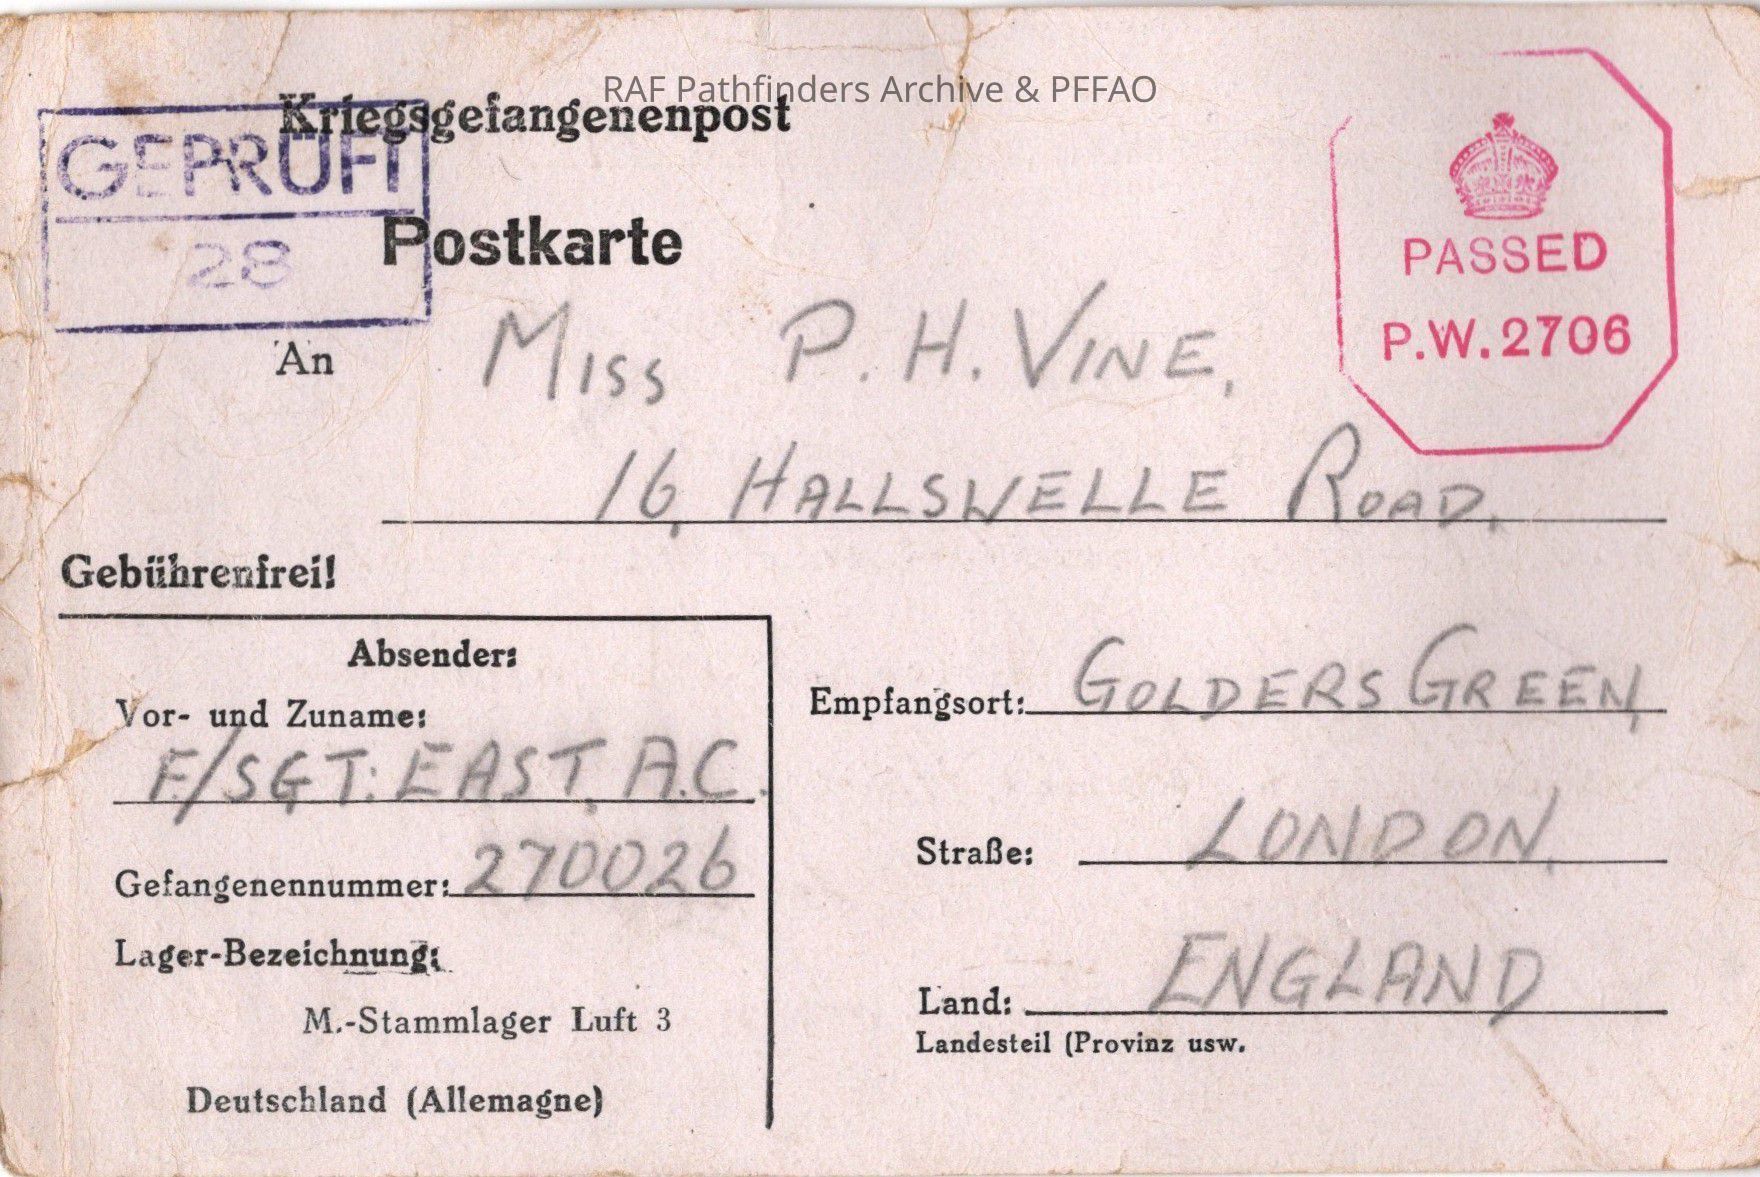 RAF Pathfinders Archive & PFFAO
Kriegsgefangenenpost
GEPRÜFT
28
Postkarte
PASSED
P.W. 2706
An
MISS P. H. VINE,
16, HALLSWELLE ROAD.
Gebührenfrei!
Absender:
Vor- und Zuname:
F/SGT: EAST, A.C.
Gefangenennummer: 270026
Lager-Bezeichnung:
M.-Stammlager Luft 3
Deutschland (Allemagne)
Empfangsort: GOLDERS GREEN,
Straße: LONDON.
Land: ENGLAND
Landesteil (Provinz usw.